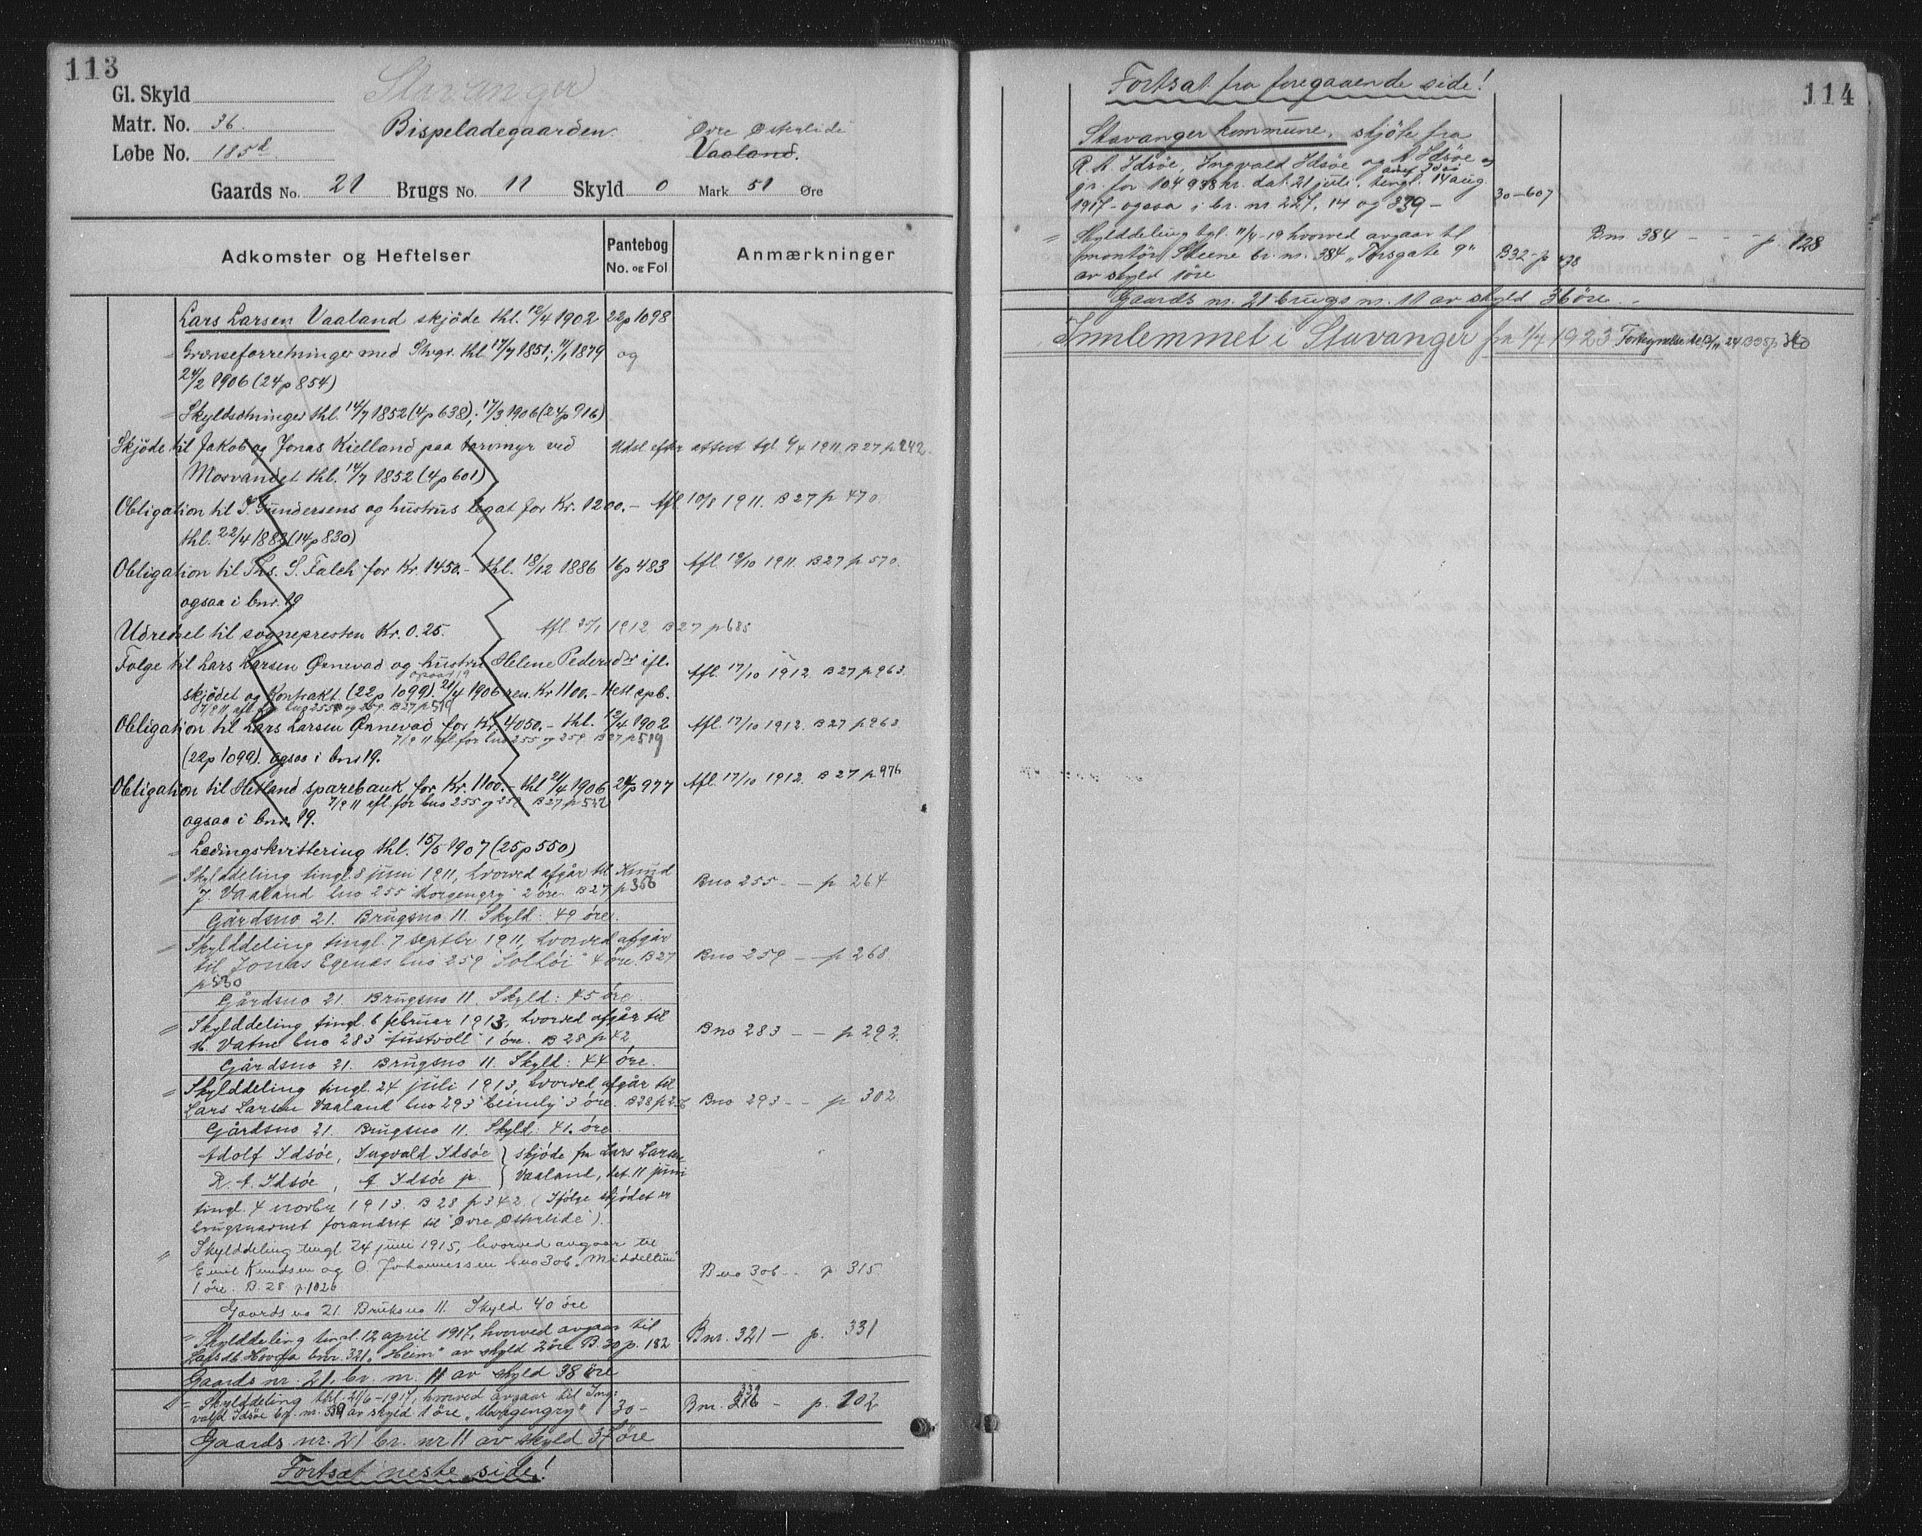 113
Stavanger
Gl. Skyld
Matr. No. 36
Løbe No. 185d
Bispeladegaarden.
Øvre Østerlide
Vaaland.
Gaards No. 21 Brugs No. 11 Skyld 0 Mark 51 Øre
Adkomster og Heftelser
Pantebog No. og Fol
Anmærkninger
Lars Larsen Vaaland skjøde thl. 12/4 1902 22p1098
Grænseforretninger med Stvgr. thl 17/7 1851, 1879 og
24/2 1906 (24p854)
Skyldsetninger thl. 14/7 1852 (4p638), 17/3 1906 (24p916)
Skjøde til Jakob og Jonas Kielland paa torvmyr ved Udsl. efter attest tgl. 6/4 1911. B27 p242.
Mosvandet thl. 14/7 1852 (4p601)
Obligation til Gundersens og hustrus legat for Kr. 1200.- Afl. 10/8 1911. B27 p 470.
thl. 22/4 1882 (14p830)
Obligation til Ths. S. Falch for Kr. 1450.- thl. 18/12 1886 16p483 Afl. 19/10 1911. B27 p 570.
ogsaa i bnr. 19
Udredsel til sognepresten Kr. 0.25. Afl 27/1 1912 B27 p685
Følge til Lars Larsen Ønnevad og hustru Helene Pedersdr ifl. Afl. 17/10 1912. B27 p963.
ogsaa i 19
skjødet og Kontrakt (22p1099). 21/4 1906 Kr 1100.- Hetl. spb.
7/9 11 afl. for bno 255 og 259 B27 p519
Obligation til Lars Larsen Ønnevad for Kr. 4050.- thl. 12/4 1902 Afl. 17/10 1912. B27 p963
7/9 11 afl. for bno 255 og 259. B27 p519
(22p1099). ogsaa i bnr 19.
Obligation til Hetland sparebank for Kr. 1100.- thl 21/4 1906 24p977 Afl. 17/10 1912 B27 p976
7/9 11 afl. for bno 255 og 259 B27 p532
ogsaa i bnr. 19.
Ledingskvittering thl. 15/5 1907 (25p550)
Skylddeling tingl. 8 juni 1911, hvorved afgår til Knud
J. Vaaland bno 255 "Morgengry" 2 øre. B27 p366 Bno 255 - - p 264
Gårdsno 21. Brugsno 11. Skyld: 49 øre.
Skylddeling tingl. 7 septbr 1911, hvorved afgår
til Jonas Egenæs bno 259 "Solhøi" 4 øre. B27 Bno 259 - - p 268.
p530
Gårdsno 21. Brugsno 11. Skyld: 45 øre.
Skylddeling tingl. 6 februar 1913, hvorved afgår til
Vatne bno 283 "Lustvoll" 1 øre. B28 p42 Bno 283 - - p 292.
Gårdsno 21. Brugsno 11. Skyld: 44 øre.
Skylddeling tingl. 24 juli 1913, hvorved afgår til
Lars Larsen Vaaland bno 293 "Heimly" 3 øre. B28 p Bno 293 - - p 302
Gårdsno 21. Brugsno 11. Skyld: 41. øre.
Adolf Idsøe, Ingvald Idsøe } skjøde fra Lars Larsen
R. A. Idsøe, A Idsøe jr } Vaaland, dat. 11 juni
tingl. 4 novbr 1913. B28 p342 (Ifølge skjødet er
brugsnavnet forandret til "Øvre Østerlide").
Skylddeling tingl 24 juni 1915, hvorved avgaar til
Emil Knudsen og O. Johannessen bno 306 "Middeltun"
1 øre. B. 28 p1026 Bno 306 - - p 315.
Gaards no 21. Bruksno 11. Skyld 40 øre
Skylddeling tingl. 12 april 1917, hvorved avgaar til
Hovda bnr. 321 "Heim" av skyld 2 øre B. 30 p. 182 Bnr. 321 - p. 331
Gaards nr. 21, br. nr. 11 av skyld 38 øre
Skylddeling thl. 21/6-1917, hvorved avgaar til Ing-
vald Idsøe br. nr. 339 av skyld 1 øre, "Morgengry" 30- Bnr. 216 339 - p. 102
Gaards nr. 21 br. nr 11 av skyld 37 øre
Fortsæt neste side!
114
Fortsat fra foregaaende side!
Stavanger kommune, skjøte fra
R. A. Idsøe, Ingvald Idsøe og A Idsøe og
jr. for 104 938 kr. dat. 21 juli, tingl. 14 aug.
1917 - ogsaa i br. nr 227, 14 og 339 - 30-607
Skylddeling tgl. 11/4-19 hvorved avgaar til
montør Steene br. nr. 384 "Torsgate 9" B32-p 478 Bnr 384 - - - p. 128
av skyld 1 øre
Gaards nr. 21 brugs nr. 11 av skyld 36 øre.
Innlemmet i Stavanger fra 1/7 1923